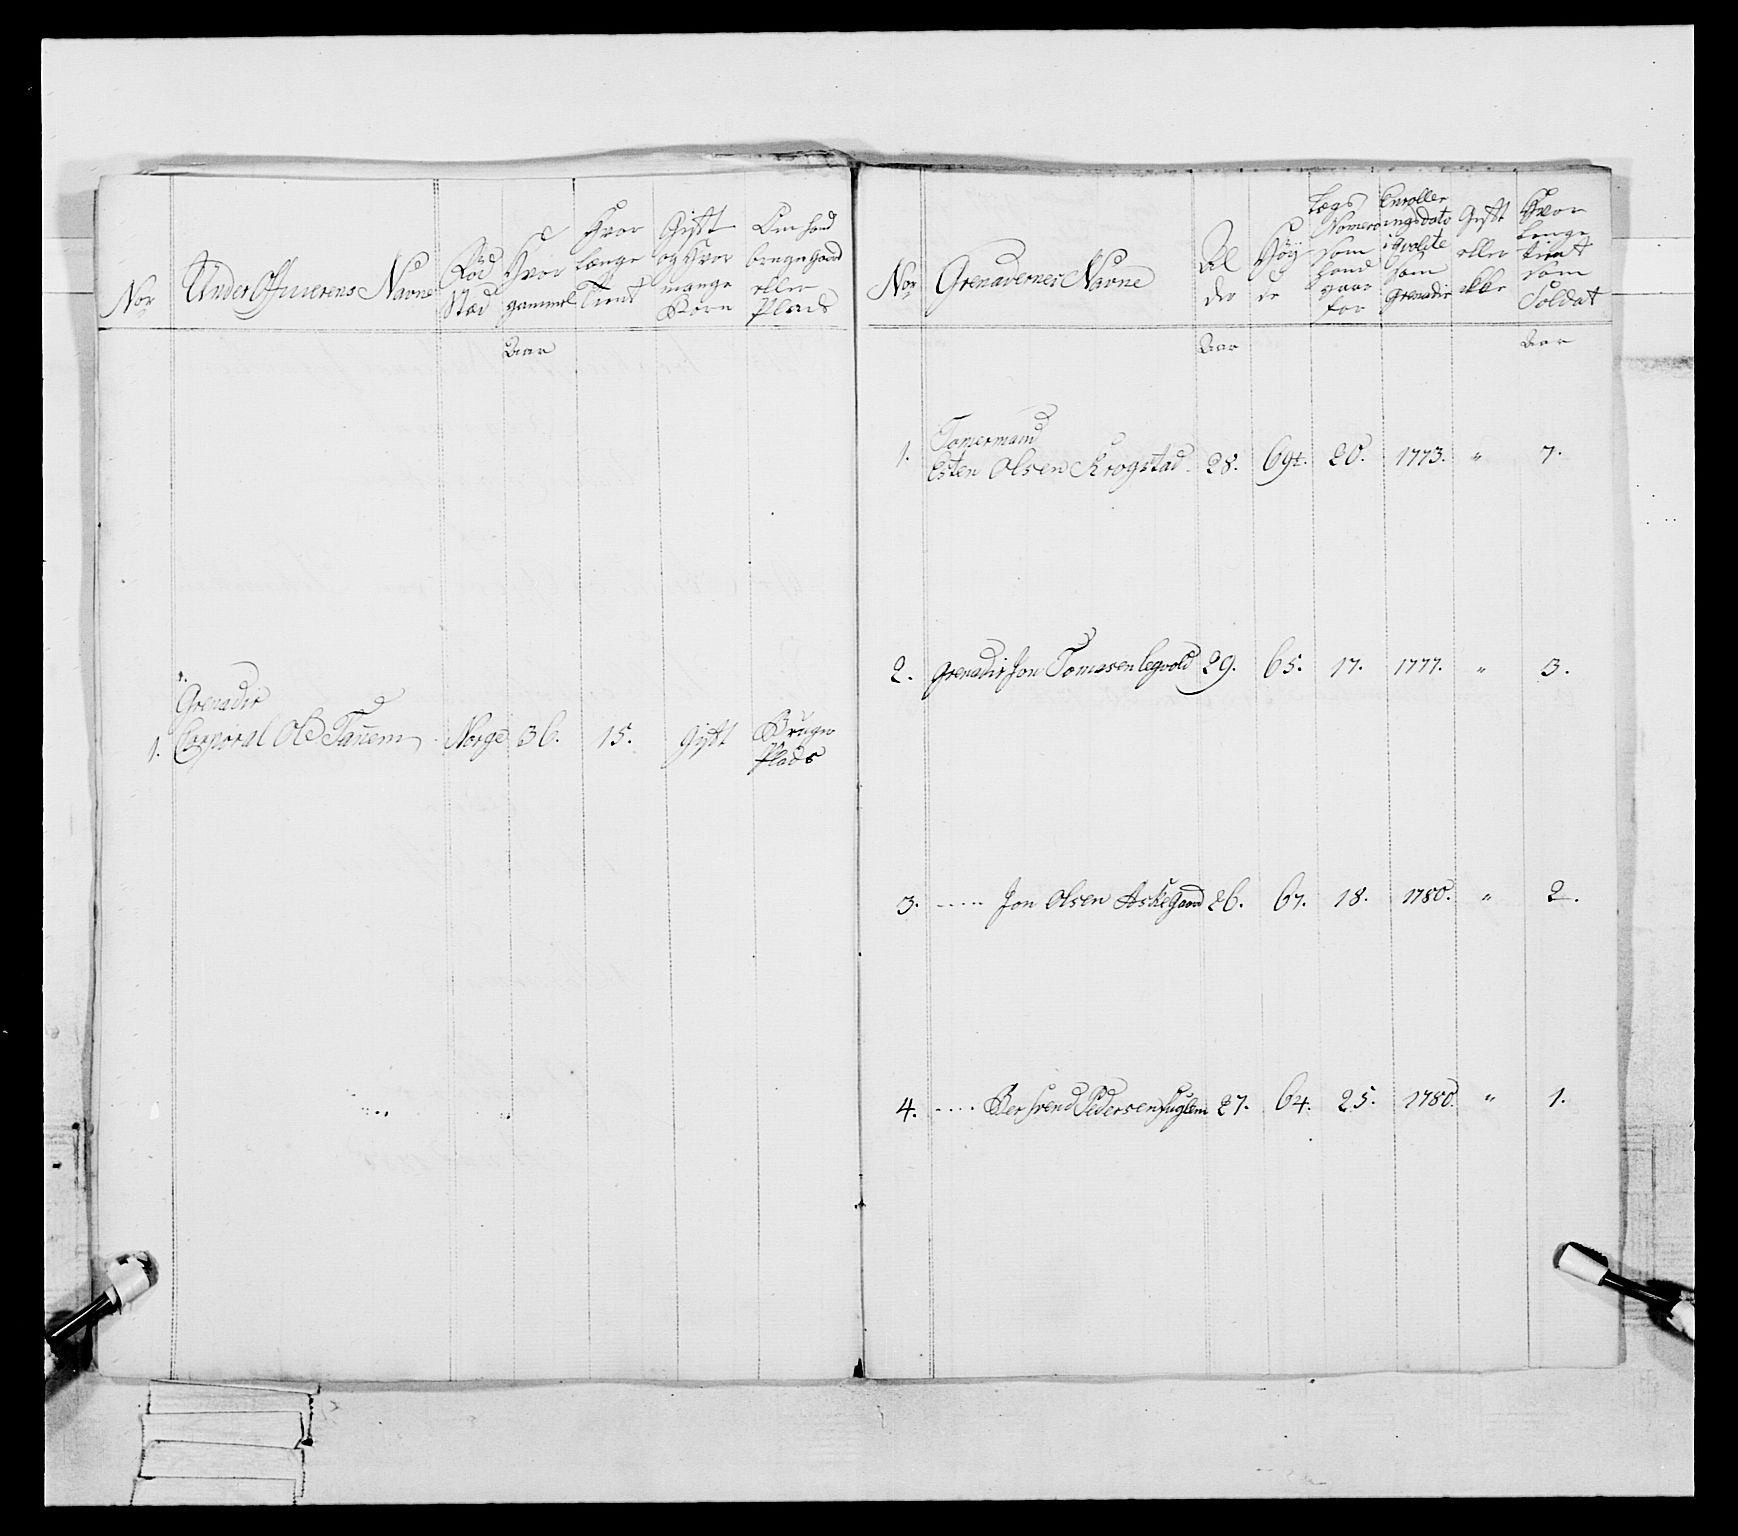 Nor
Under Officerens Navne
Föd Sted
Hvor gammel
Hvor længe Tient
Gift og Hvor mange Börn
Om hand bruger Gaard eller Plads
Aar
Grenader
1. Corporal Ole Tanem Norge 36. 15. Gift Bruger Plads
Nor
Grenadernes Navne
Al der
Höy de
Legs Nomero som hand staar for
Enroller ingsdato som Grenader
Gift eller ikke
Hvor lenge tient som Soldat
Aar
Aar
Tomermand
1. Esten Olsen Krogstad 28. 69 20. 1773. " 7.
2. Grenader Jon Tomesen 29. 65. 17. 1777. " 3.
3. ----- Jon Olsen Askegaard 26. 67. 18. 1780. " 2.
4. ---- Pedersen fuglem 27. 64. 25. 1780. " 1.